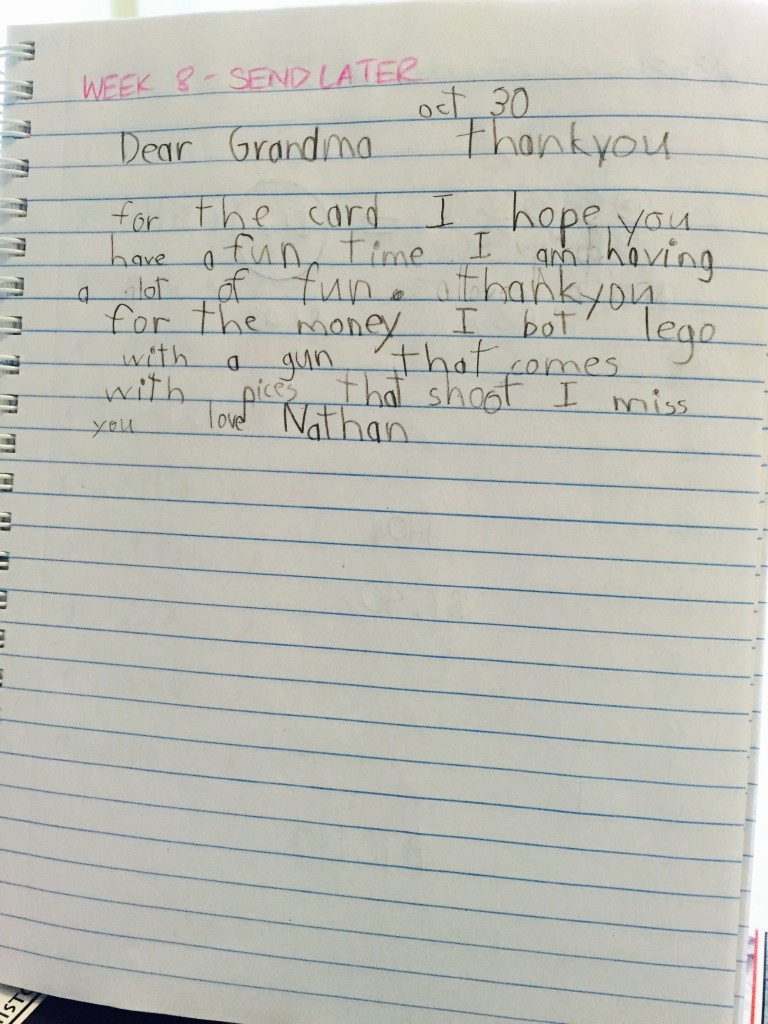 WEEK 8 - SEND LATER
oct 30
Dear Grandma thankyou
for the card I hope you
have a fun time I am having
a lot of fun. thankyou
for the money I bot lego
with a gun that comes
with pices that shoot I miss
you love Nathan